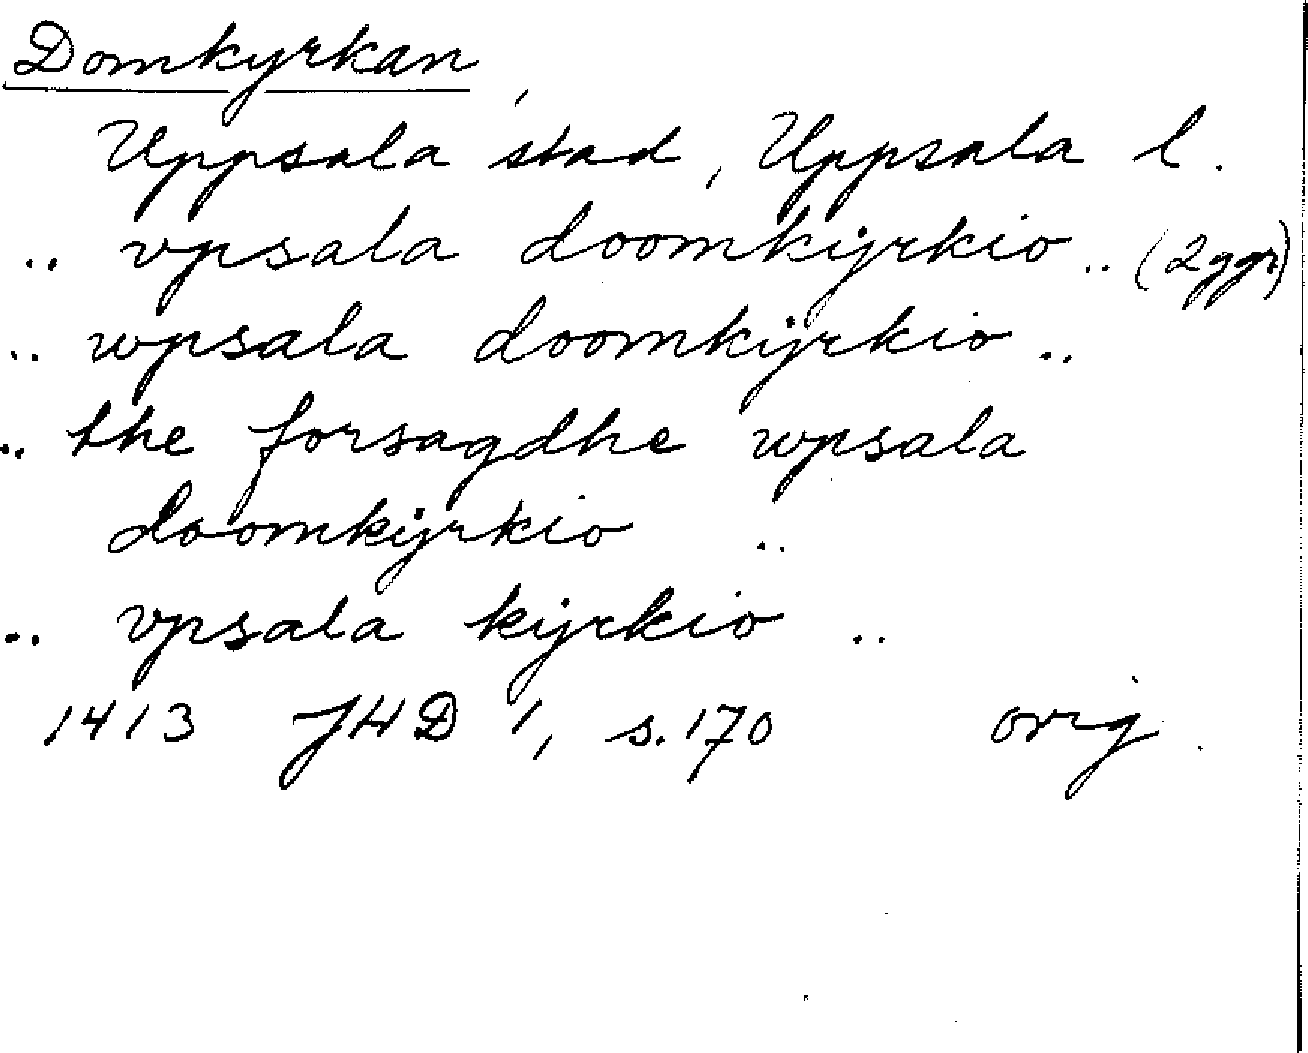 Domkyrkan,
Uppsala stad, Uppsala l.
.. vpsala doomkijrkio .. (2ggr)
.. wpsala doomkijrkio ..
.. the forsagdhe wpsala
doomkijrkio ..
.. vpsala kijrkio ..
1413 JHD 1, s. 170 orig.